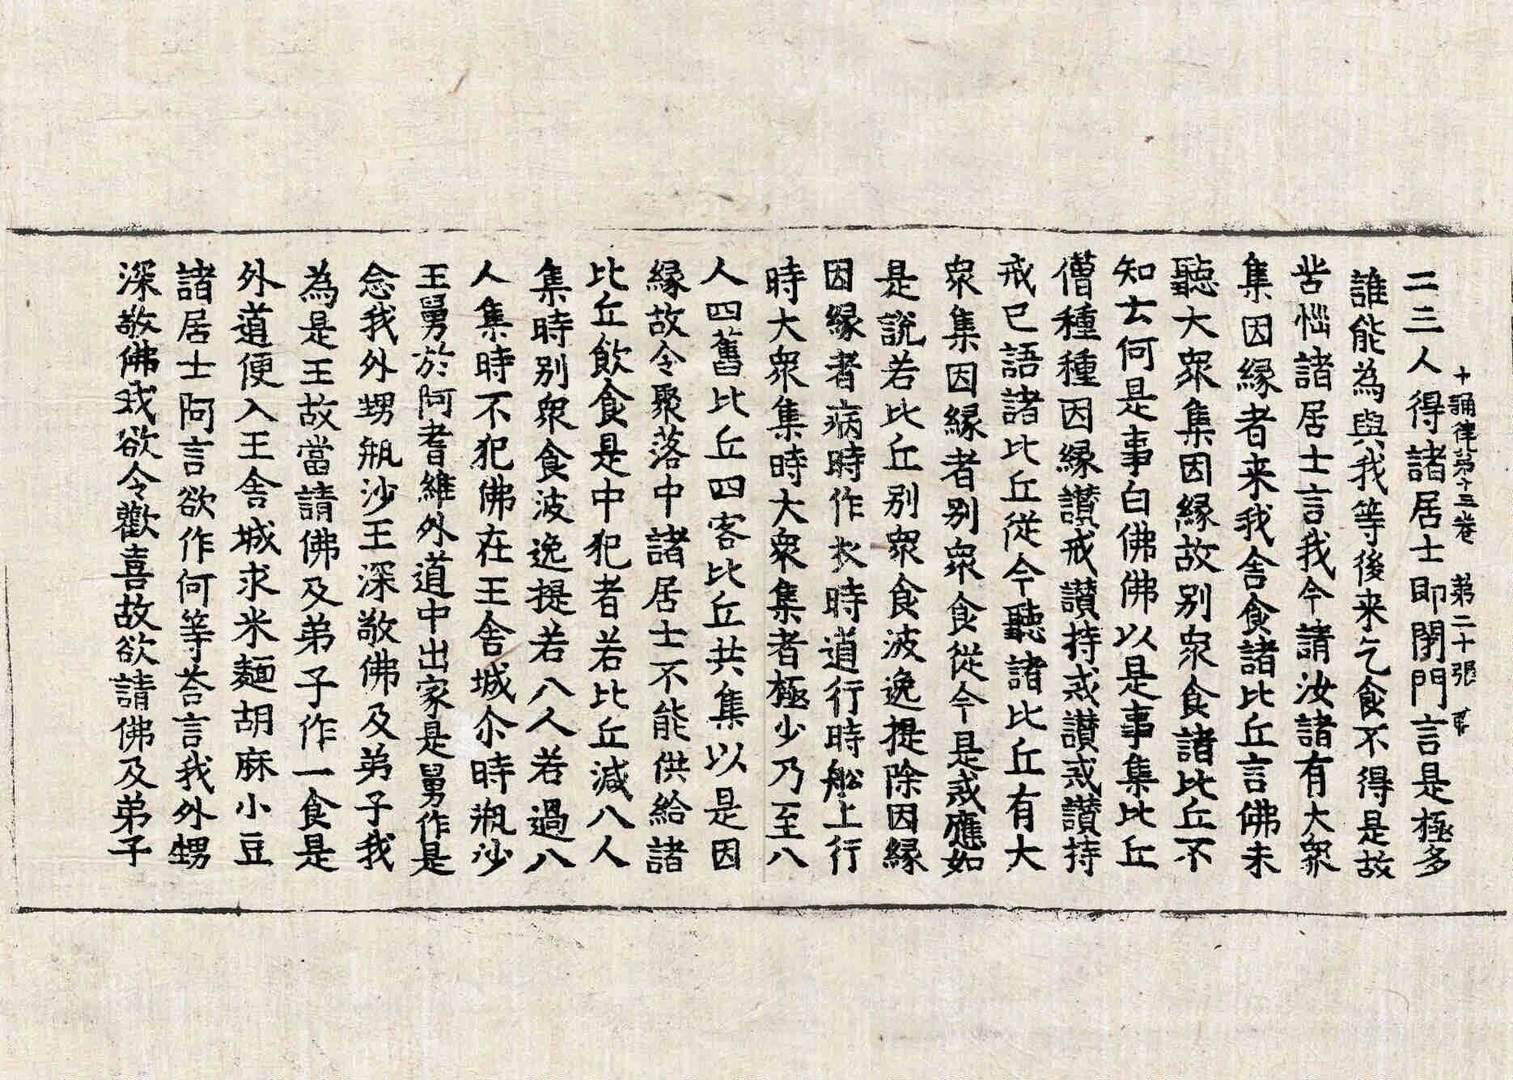 十誦律第十三卷　第二十張
二三人得諸居士即閇門言是極多
誰能為與我等後来乞食不得是故
苦惱諸居士言我今請汝諸有大衆
集因縁者来我舍食諸比丘言佛未
聽大衆集因縁故别衆食諸比丘不
知云何是事白佛佛以是事集比丘
僧種種因縁讃戒讃持戒讃戒讃持
戒已語諸比丘從今聽諸比丘有大
衆集因縁者别衆食從今是戒應如
是說若比丘别衆食波逸提除因縁
因縁者病時作衣時道行時舩上行
時大衆集時大衆集者極少乃至八
人四舊比丘四客比丘共集以是因
縁故令聚落中諸居士不能供給諸
比丘飲食是中犯者若比丘減八人
集時别衆食波逸提若八人若過八
人集時不犯佛在王舍城尒時瓶沙
王舅於阿耆維外道中出家是舅作是
念我外甥瓶沙王深敬佛及弟子我
為是王故當請佛及弟子作一食是
外道便入王舍城求米麵胡麻小豆
諸居士問言欲作何等荅言我外甥
深敬佛我欲令歡喜故欲請佛及弟子